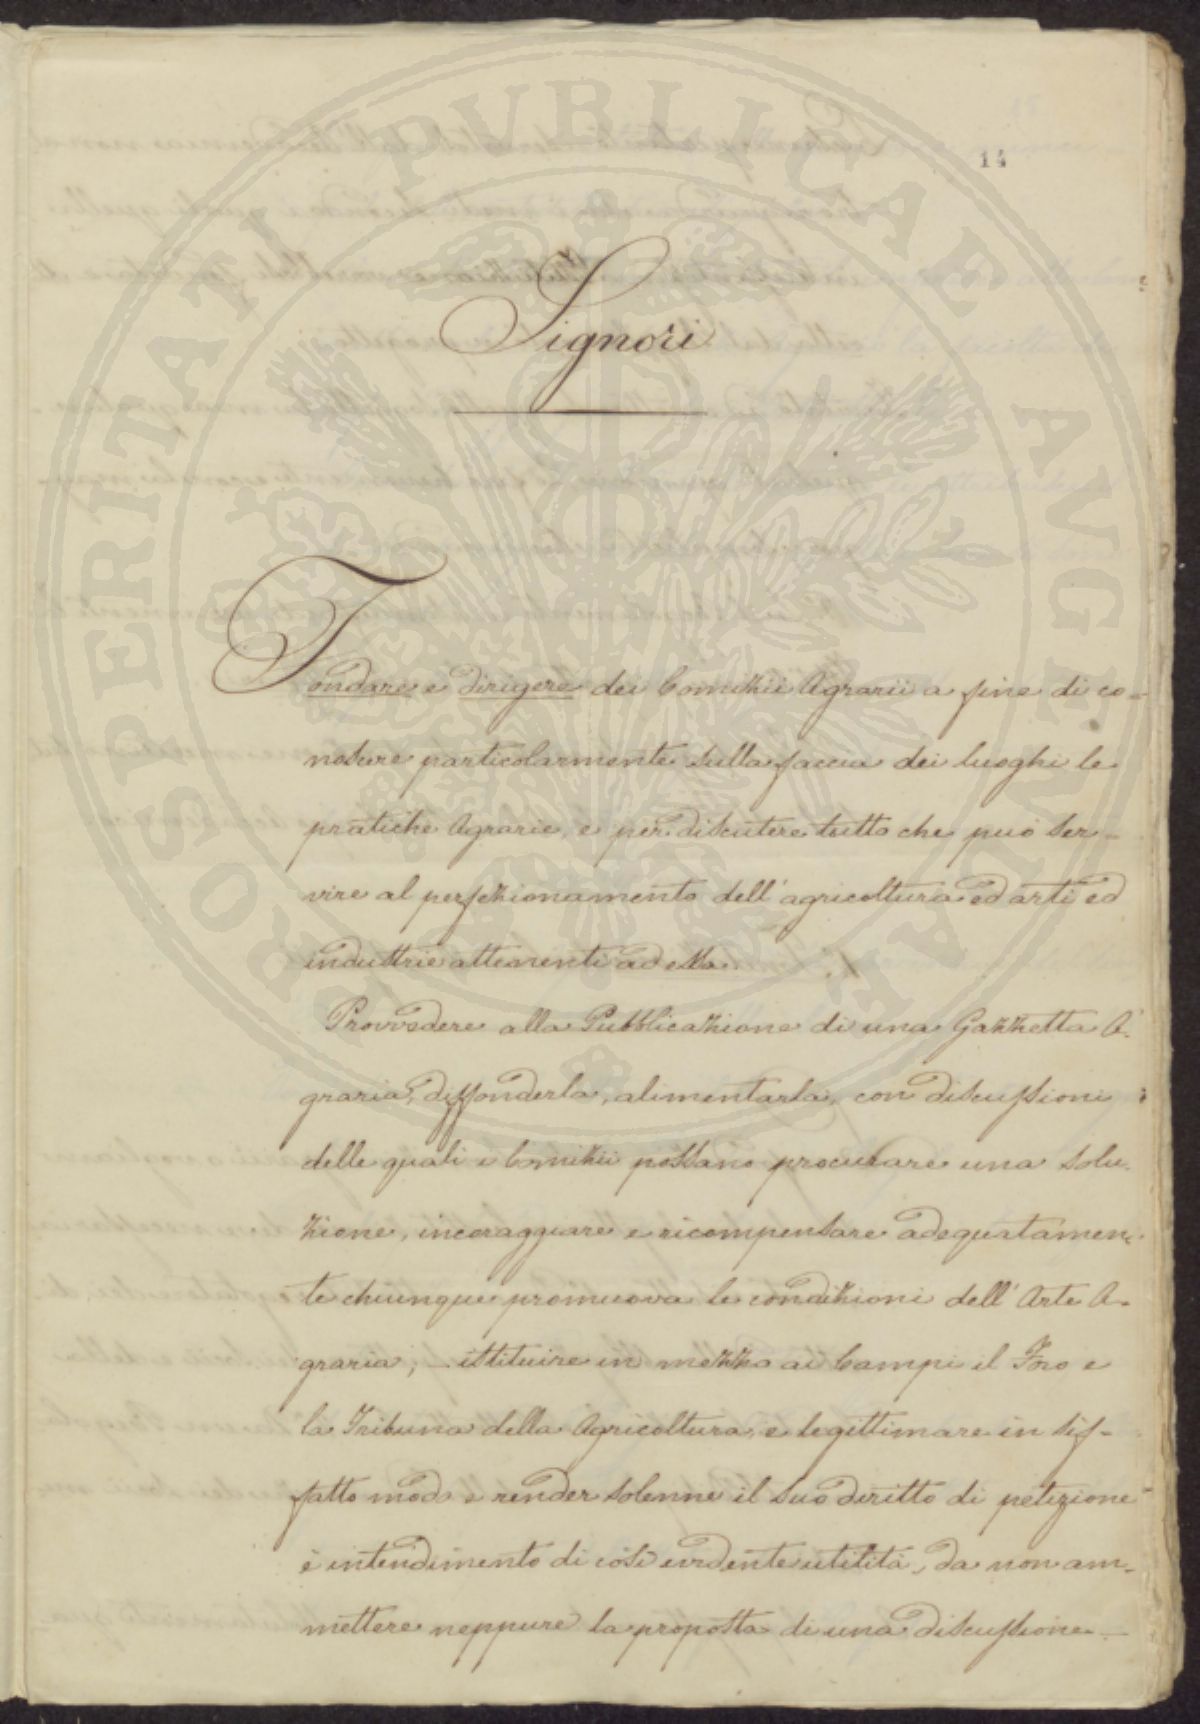 14
Signori
Fondare e dirigere dei Comizii Agrarii a fine di co-
noscere particolarmente sulla faccia dei luoghi le
pratiche Agrarie, e per discutere tutto che può ser-
vire al perfezionamento dell'agricoltura ed arti ed
industrie attenenti ad essa.
Provvedere alla Pubblicazione di una Gazzetta A-
graria, diffonderla, alimentarla, con discussioni
delle quali i Comizii possano procurare una solu-
zione, incoraggiare e ricompensare adeguatamen-
te chiunque promuova le condizioni dell'Arte A-
graria; – istituire in mezzo ai Campi il Foro e
la Tribuna della Agricoltura, e legittimare in sif-
fatto modo e render solenne il suo diritto di petizione
è intendimento di così evidente utilità, da non am-
mettere neppure la proposta di una discussione –
PROSPERITATI PUBLICAE AUGENDAE